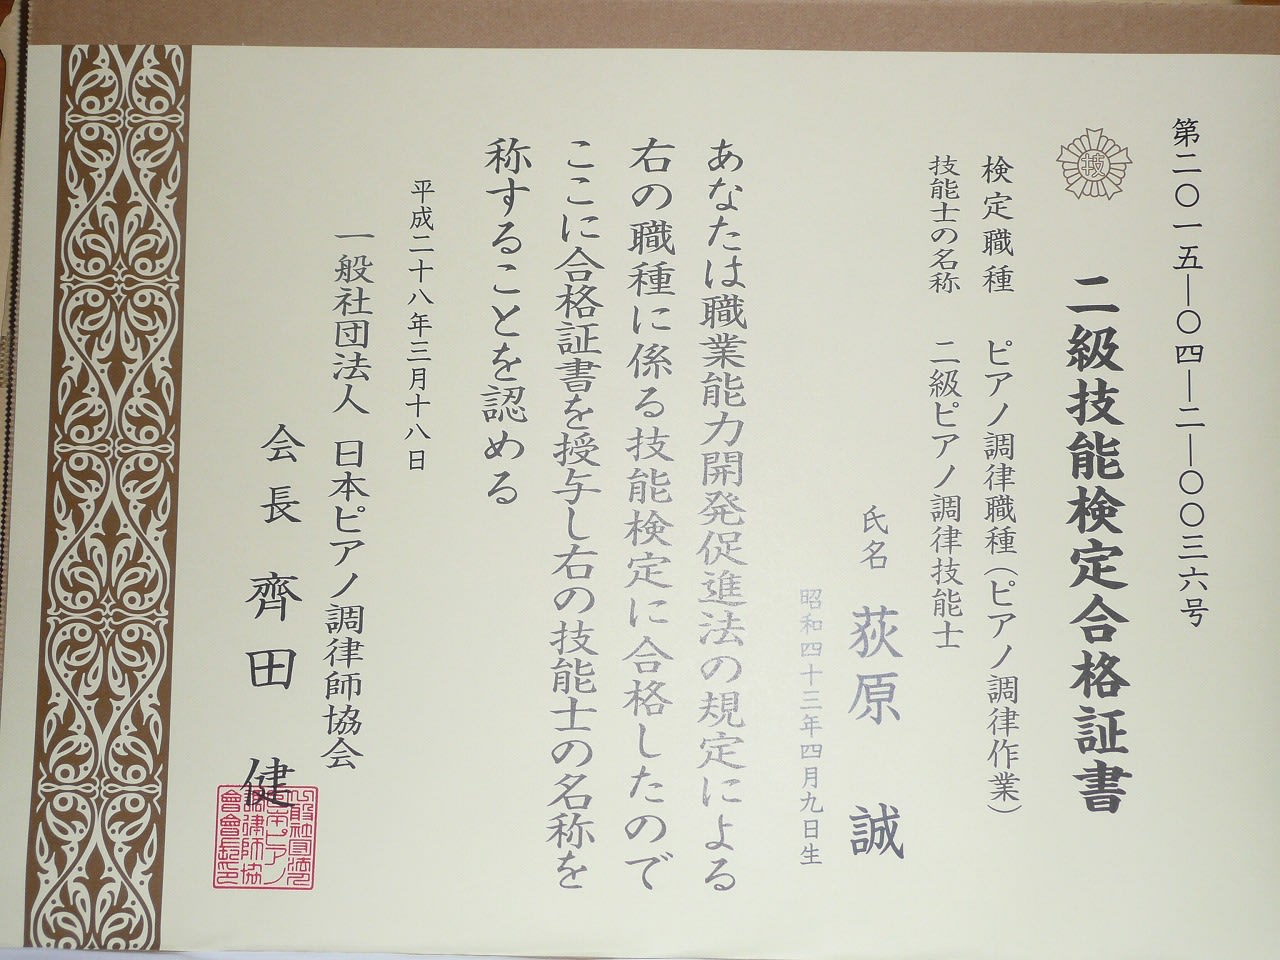 第二〇一五―〇四―二―〇〇三六号
技
二級技能検定合格証書
検定職種 ピアノ調律職種(ピアノ調律作業)
技能士の名称 二級ピアノ調律技能士
氏名 荻原 誠
昭和四十三年四月九日生
あなたは職業能力開発促進法の規定による
右の職種に係る技能検定に合格したので
ここに合格証書を授与し右の技能士の名称を
称することを認める
平成二十八年三月十八日
一般社団法人 日本ピアノ調律師協会
会長 齊田 健
一般社団法人
日本ピアノ
調律師協
會會長印